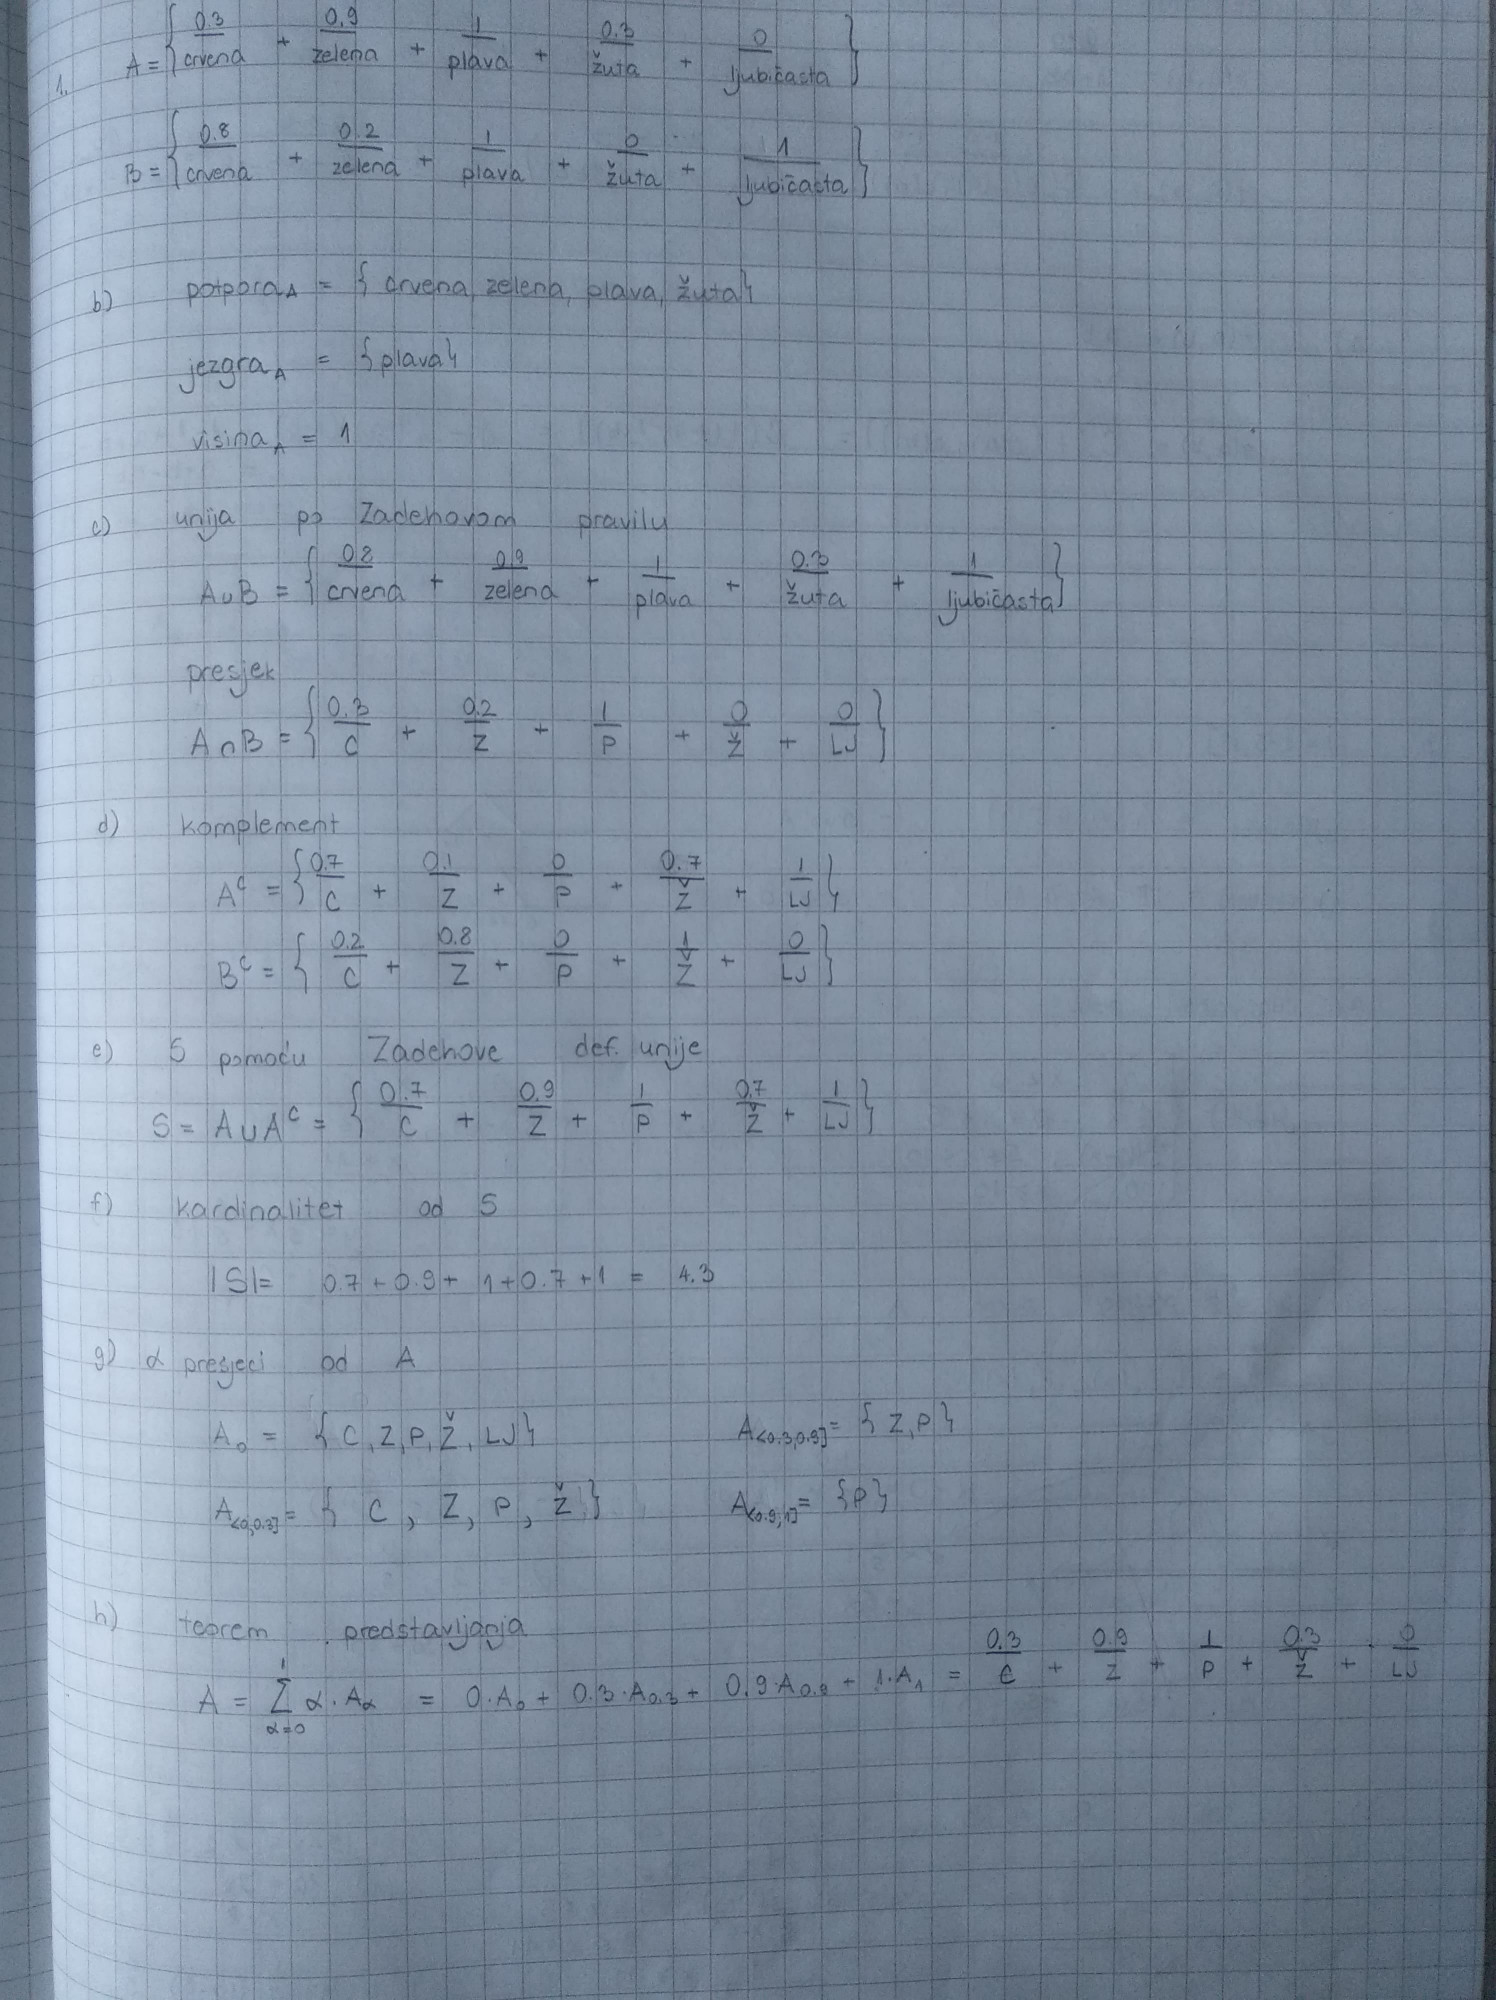 1. A = { 0.3/crvena + 0.9/zelena + 1/plava + 0.3/žuta + 0/ljubičasta }
B = { 0.8/crvena + 0.2/zelena + 1/plava + 0/žuta + 1/ljubičasta }
b) potpora_A = { crvena, zelena, plava, žuta }
jezgra_A = { plava }
visina_A = 1
c) unija po Zadehovom pravilu
A∪B = { 0.8/crvena + 0.9/zelena + 1/plava + 0.3/žuta + 1/ljubičasta }
presjek
A∩B = { 0.3/C + 0.2/Z + 1/P + 0/Ž + 0/LJ }
d) komplement
A^C = { 0.7/C + 0.1/Z + 0/P + 0.7/Ž + 1/LJ }
B^C = { 0.2/C + 0.8/Z + 0/P + 1/Ž + 0/LJ }
e) S pomoću Zadehove def. unije
S = A∪A^C = { 0.7/C + 0.9/Z + 1/P + 0.7/Ž + 1/LJ }
f) kardinalitet od S
|S| = 0.7 + 0.9 + 1 + 0.7 + 1 = 4.3
g) α presjeci od A
A_0 = { C, Z, P, Ž, LJ } A_<0.3,0.9] = { Z, P }
A_<0,0.3] = { C, Z, P, Ž } A_<0.9,1] = { P }
h) teorem predstavljanja
A = ∑_{α=0}^{1} α · A_α = 0·A_0 + 0.3·A_0.3 + 0.9·A_0.9 + 1·A_1 = 0.3/C + 0.9/Z + 1/P + 0.3/Ž + 0/LJ